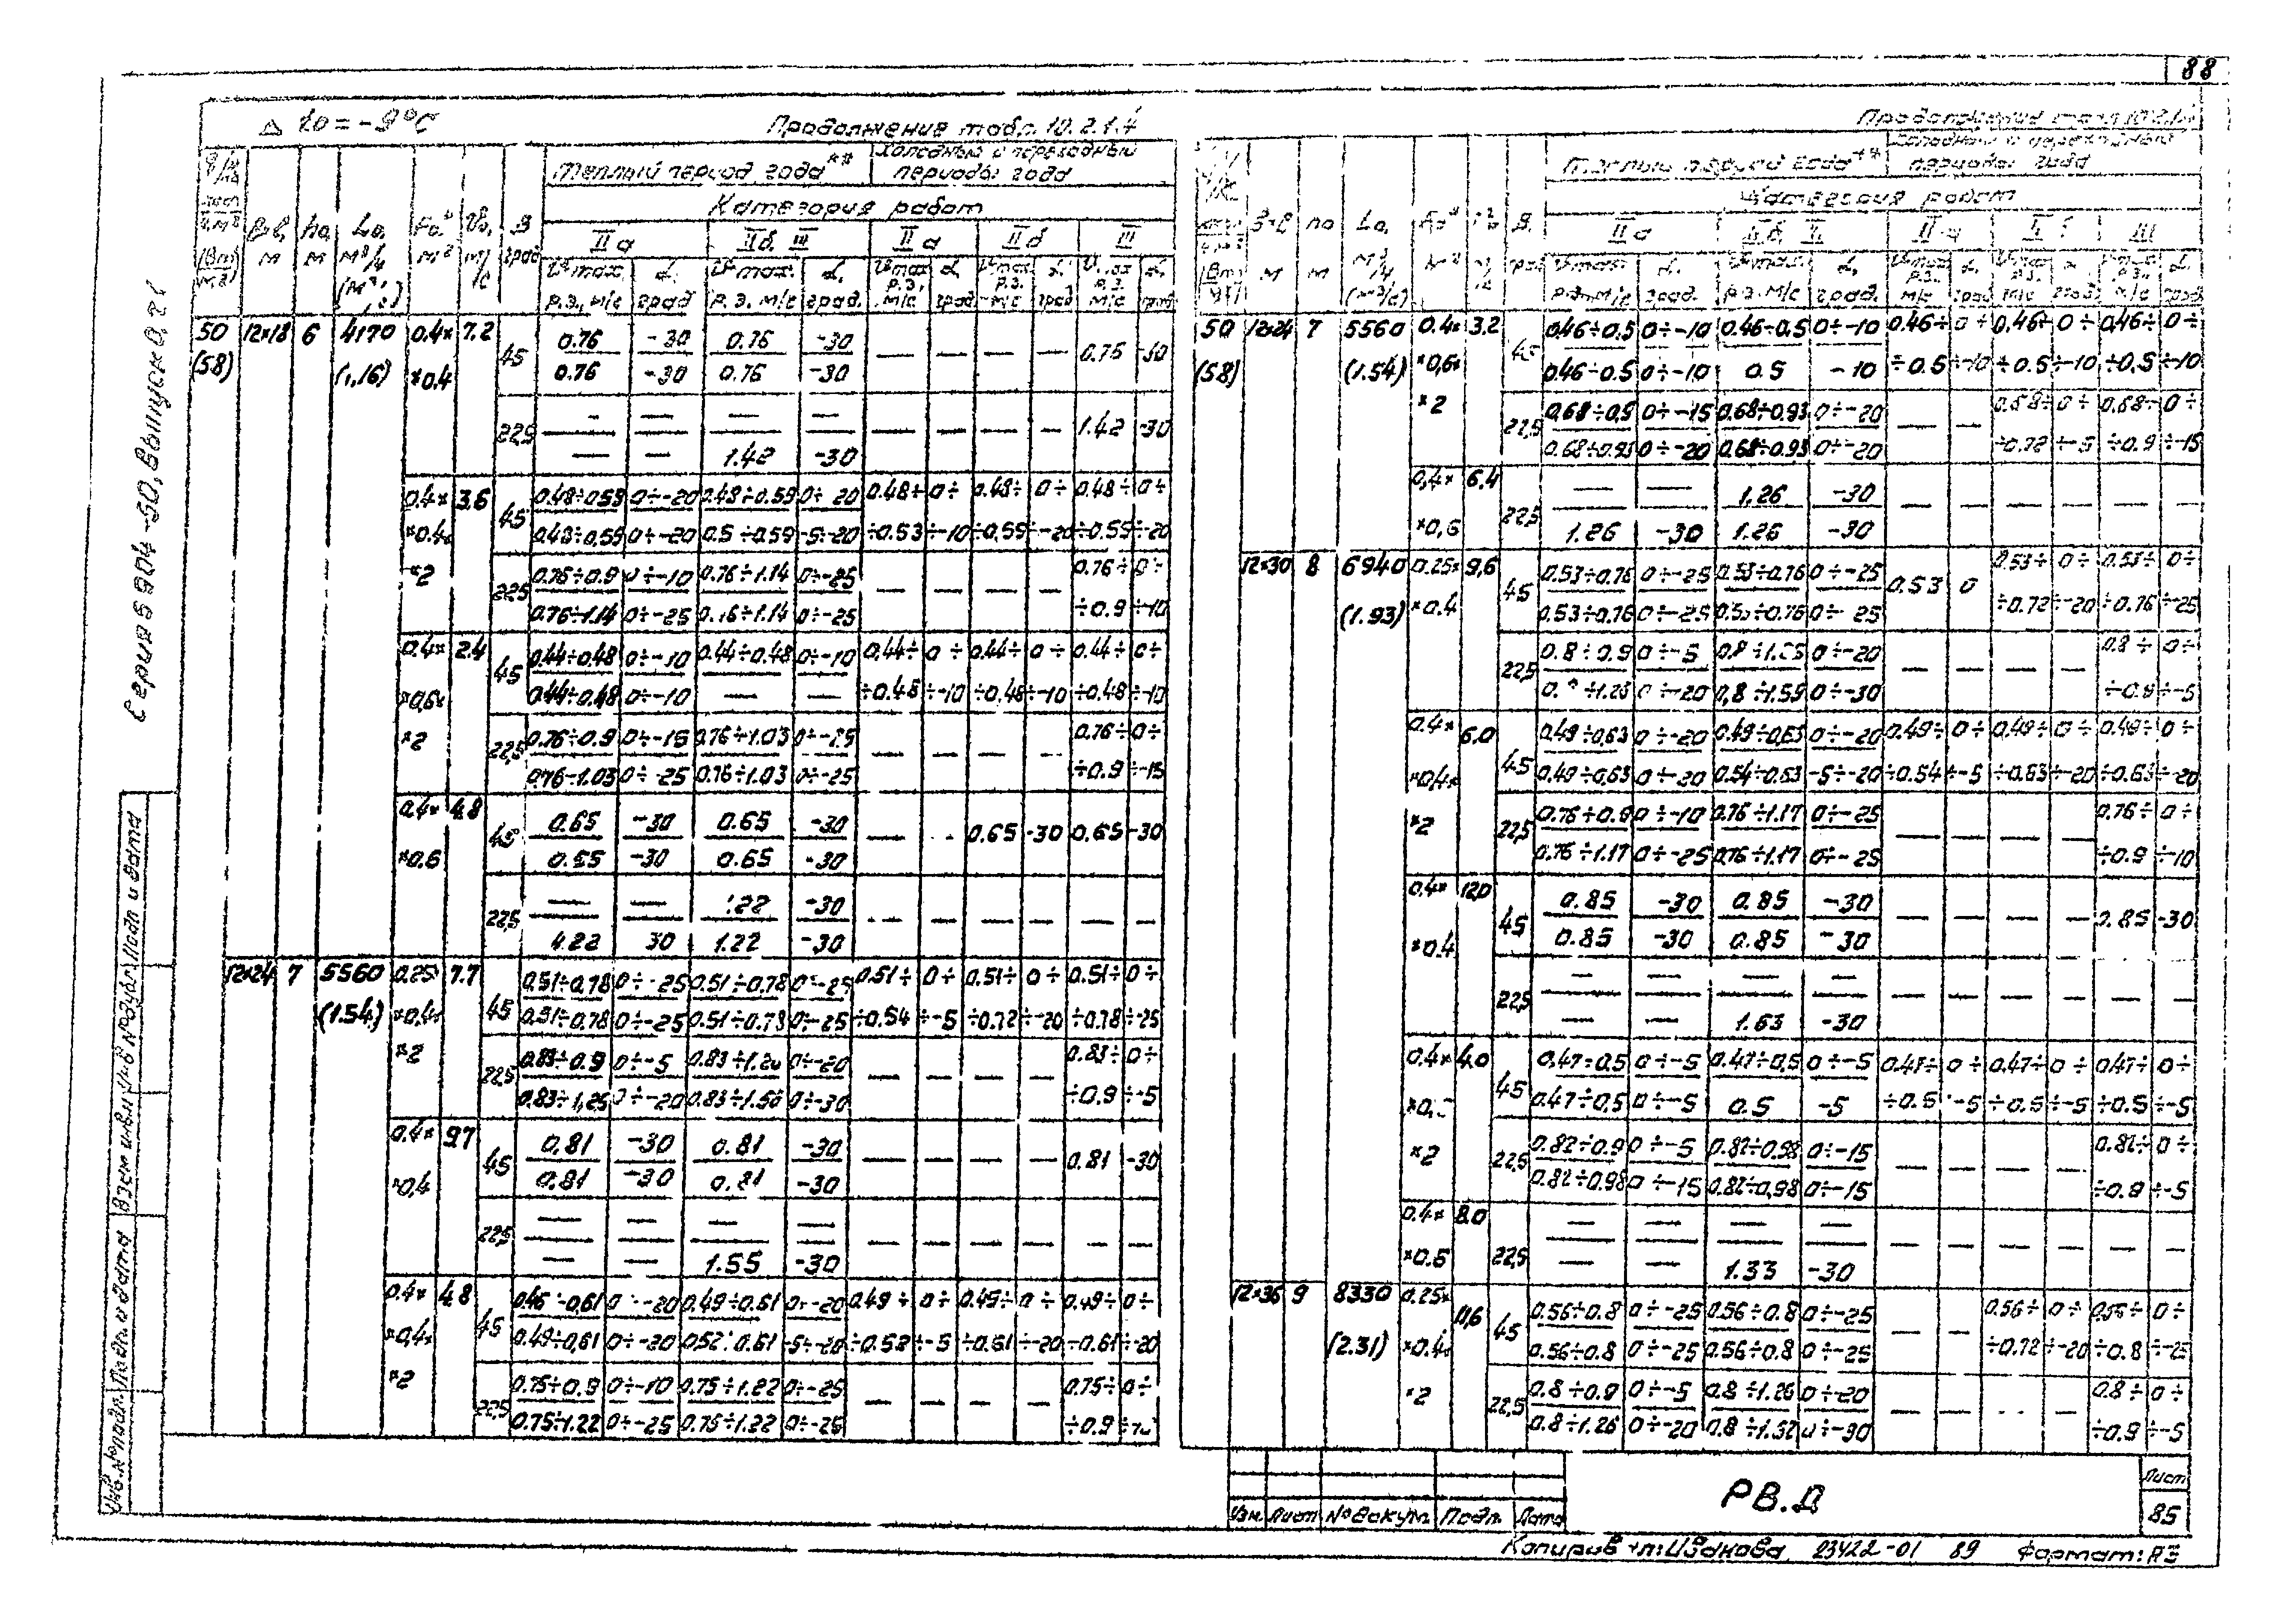 88
Δ to = -9°C
Продолжение табл. 10.2.1.4
Теплый период года**
Холодный и переходный периоды года
Категория работ
IIа IIб, III IIа IIб III
B×l, м
ho, м
Lo, м³/ч (м³/с)
Fo, м²
Vo, м/с
β, град
Vmax р.з., м/с
α, град.
50 (58) 12×18 6 4170 (1,16) 0.4× ×0.4 7.2
45 0.76 -30 0.76 -30 — — — — 0.76 -30
0.76 -30 0.76 -30
22,5 — — — — — — — — 1.42 -30
— — 1.42 -30
0.4× ×0.4× ×2 3.6
45 0.48÷0.59 0÷-20 0.48÷0.59 0÷-20 0.48÷ 0÷ 0.48÷ 0÷ 0.48÷ 0÷
0.48÷0.59 0÷-20 0.5÷0.59 -5÷-20 ÷0.53 ÷-10 ÷0.59 ÷-20 ÷0.59 ÷-20
22,5 0.76÷0.9 0÷-10 0.76÷1.14 0÷-25 — — — — 0.76÷ 0÷
0.76÷1.14 0÷-25 0.76÷1.14 0÷-25 ÷0.9 ÷-10
0.4× ×0,6× ×2 2.4
45 0.44÷0.48 0÷-10 0.44÷0.48 0÷-10 0.44÷ 0÷ 0.44÷ 0÷ 0.44÷ 0÷
0.44÷0.48 0÷-10 — — ÷0.48 ÷-10 ÷0.48 ÷-10 ÷0.48 ÷-10
22,5 0.76÷0.9 0÷-15 0.76÷1.03 0÷-25 — — — — 0.76÷ 0÷
0.76÷1.03 0÷-25 0.76÷1.03 0÷-25 ÷0.9 ÷-15
0.4× ×0.6 4.8
45 0.65 -30 0.65 -30 — — 0.65 -30 0.65 -30
0.65 -30 0.65 -30
22,5 — — 1.22 -30 — — — — — —
1.22 -30 1.22 -30
12×24 7 5560 (1.54) 0.25× ×0.4× ×2 7.7
45 0.51÷0.78 0÷-25 0.51÷0.78 0÷-25 0.51÷ 0÷ 0.51÷ 0÷ 0.51÷ 0÷
0.51÷0.78 0÷-25 0.51÷0.78 0÷-25 ÷0.54 ÷-5 ÷0.72 ÷-20 ÷0.78 ÷-25
22,5 0.83÷0.9 0÷-5 0.83÷1.26 0÷-20 — — — — 0.83÷ 0÷
0.83÷1,25 0÷-20 0.83÷1.56 0÷-30 ÷0.9 ÷-5
0.4× ×0,4 9.7
45 0.81 -30 0.81 -30 — — — — 0.81 -30
0.81 -30 0.81 -30
22,5 — — — — — — — — — —
— — 1.55 -30
0.4× ×0,4× ×2 4.8
45 0.46÷0,61 0÷-20 0.49÷0.61 0÷-20 0.49÷ 0÷ 0.49÷ 0÷ 0.49÷ 0÷
0.49÷0,61 0÷-20 0.52÷0.61 -5÷-20 ÷0.52 ÷-5 ÷0.61 ÷-20 ÷0.61 ÷-20
22,5 0.75÷0.9 0÷-10 0.75÷1.22 0÷-25 — — — — 0.75÷ 0÷
0.75÷1.22 0÷-25 0.75÷1.22 0÷-25 ÷0.9
Продолжение табл. 10.2.1.4
Теплый период года**
Холодный и переходный периоды года
Категория работ
IIа IIб, III IIа IIб III
50 (58) 12×24 7 5560 (1.54) 0.4× ×0,6× ×2 3.2
45 0.46÷0.5 0÷-10 0.46÷0,5 0÷-10 0.46÷ 0÷ 0.46÷ 0÷ 0.46÷ 0÷
0.46÷0.5 0÷-10 0.5 -10 ÷0.5 ÷-10 ÷0.5 ÷-10 ÷0.5 ÷-10
22,5 0.68÷0.9 0÷-15 0.68÷0.93 0÷-20 — — 0.68÷ 0÷ 0.68÷ 0÷
0.68÷0.93 0÷-20 0.68÷0.93 0÷-20 ÷0.72 ÷-5 ÷0.9 ÷-15
0,4× ×0,6 6.4
22,5 — — 1.26 -30 — — — — — —
1.26 -30 1.26 -30
12×30 8 6940 (1.93) 0.25× ×0.4 9,6
45 0.53÷0.76 0÷-25 0.53÷0.76 0÷-25 0.53 0 0.53÷ 0÷ 0.53÷ 0÷
0.53÷0.76 0÷-25 0.53÷0.76 0÷-25 ÷0.72 ÷-20 ÷0.76 ÷-25
22,5 0.8÷0.9 0÷-5 0.8÷1.25 0÷-20 — — — — 0.8÷ 0÷
0.8÷1.26 0÷-20 0,8÷1.59 0÷-30 ÷0.9 ÷-5
0.4× ×0,4× ×2 6,0
45 0.49÷0,63 0÷-20 0.49÷0,63 0÷-20 0.49÷ 0÷ 0.49÷ 0÷ 0.49÷ 0÷
0.49÷0,63 0÷-20 0.54÷0.63 -5÷-20 ÷0.54 ÷-5 ÷0.63 ÷-20 ÷0.63 ÷-20
22,5 0.76÷0.9 0÷-10 0.76÷1.17 0÷-25 — — — — 0.76÷ 0÷
0.76÷1.17 0÷-25 0.76÷1.17 0÷-25 ÷0.9 ÷-10
0.4× ×0.4 12,0
45 0.85 -30 0.85 -30 — — — — 0.85 -30
0.85 -30 0.85 -30
22,5 — — — — — — — — — —
— — 1.63 -30
0.4× ×2 4.0
45 0,47÷0.5 0÷-5 0.47÷0,5 0÷-5 0.47÷ 0÷ 0.47÷ 0÷ 0.47÷ 0÷
0.47÷0,5 0÷-5 0.5 -5 ÷0.5 ÷-5 ÷0.5 ÷-5 ÷0.5 ÷-5
22,5 0.82÷0.9 0÷-5 0.82÷0.98 0÷-15 — — — — 0.82÷ 0÷
0.82÷0.98 0÷-15 0.82÷0,98 0÷-15 ÷0.9 ÷-5
0.4× ×0.6 8.0
22,5 — — — — — — — — — —
— — 1.33 -30
12×36 9 8330 (2.31) 0.25× ×0.4× ×2 11,6
45 0.56÷0.8 0÷-25 0.56÷0.8 0÷-25 — — 0.56÷ 0÷ 0.56÷ 0÷
0.56÷0.8 0÷-25 0.56÷0.8 0÷-25 ÷0.72 ÷-20 ÷0.8 ÷-25
22,5 0.8÷0.9 0÷-5 0.8÷1.26 0÷-20 — — — — 0.8÷ 0÷
0.8÷1.26 0÷-20 0.8÷1.52 0÷-30 ÷0.9 ÷-5
Серия 5.904-50, Выпуск 0, ч. 1
Инв. № подл. Подп. и дата Взам. инв. № Инв. № дубл. Подп. и дата
Изм. Лист № докум. Подп. Дата
РВ.Д
Лист
85
Копировал: 23422-01 89 Формат: А3